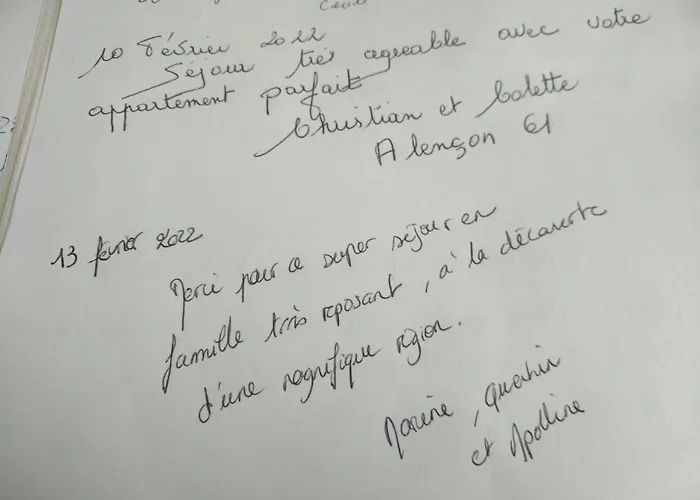 10 Février 2022
Séjour très agreable avec votre
appartement parfait
Christian et Colette
Alençon 61
13 février 2022
Merci pour ce super séjour en
famille très reposant, à la découverte
d'une magnifique région.
Marine, Quentin
et Apolline